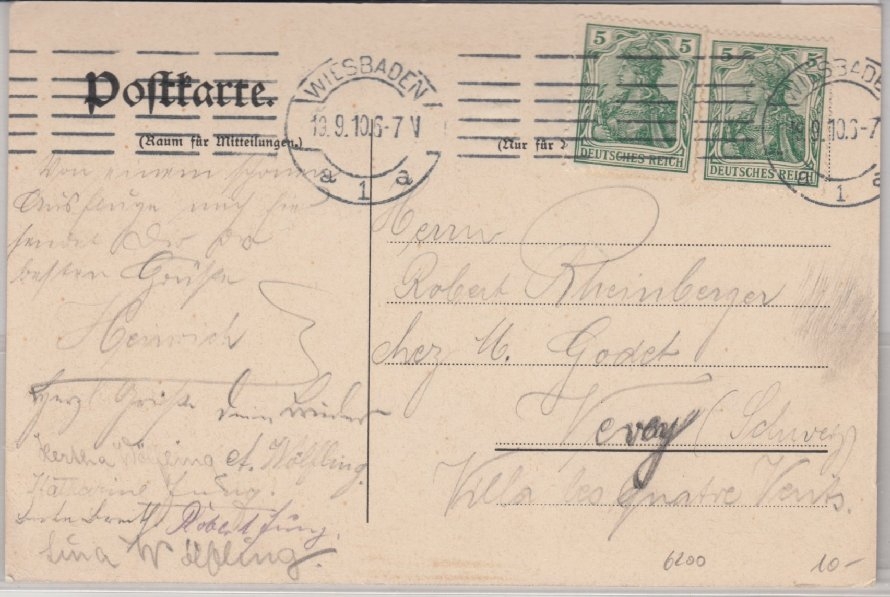 Postkarte.
(Raum für Mitteilungen.)
(Nur für
WIESBADEN
19.9.10.6-7 V
a 1 a
5 5
DEUTSCHES REICH
5
DEUTSCHES REICH
WIESBADE
19.9.10.6-7
a 1 a
Von einem schönen
Ausfluge
sendet Dir die
besten Grüße
Heinrich
Herzl Grüße Dein Bruder
Hertha Wölfling A. Wölfling.
Katharine Jung.
Robert Jung.
Lina Wölfling.
Herrn
Robert Rheinberger
chez M. Godet
Vevey (Schweiz)
Villa les quatre Vents.
6200
10-